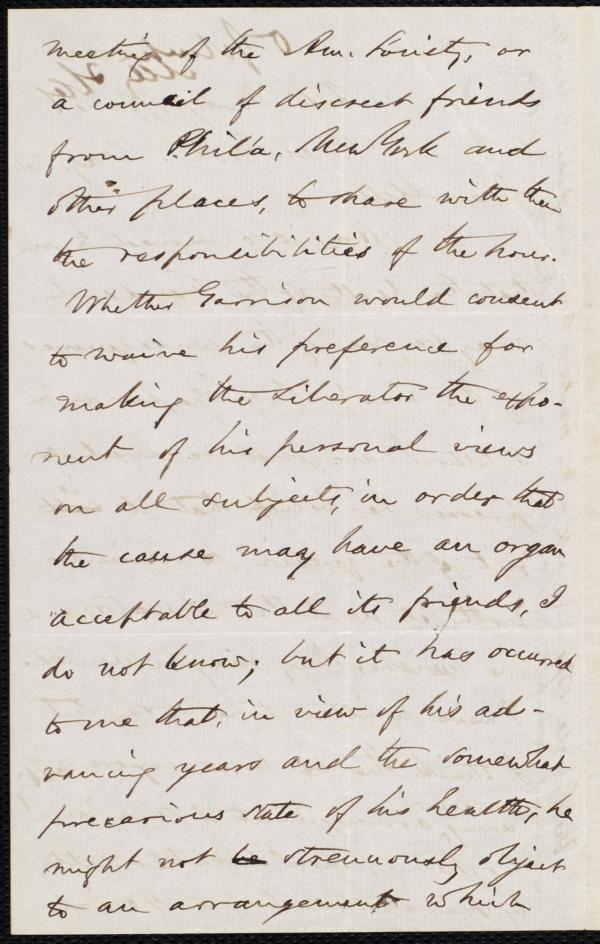 meeting of the Am. Society, or
a council of discreet friends
from Phil'a, New York and
other places, to share with them
the responsibilities of the hour.
Whether Garrison would consent
to waive his preference for
making the Liberator the expo-
nent of his personal views
on all subjects, in order that
the cause may have an organ
acceptable to all its friends, I
do not know; but it has occurred
to me that, in view of his ad-
vancing years and the somewhat
precarious state of his health, he
might not be strenuously object
to an arrangement which